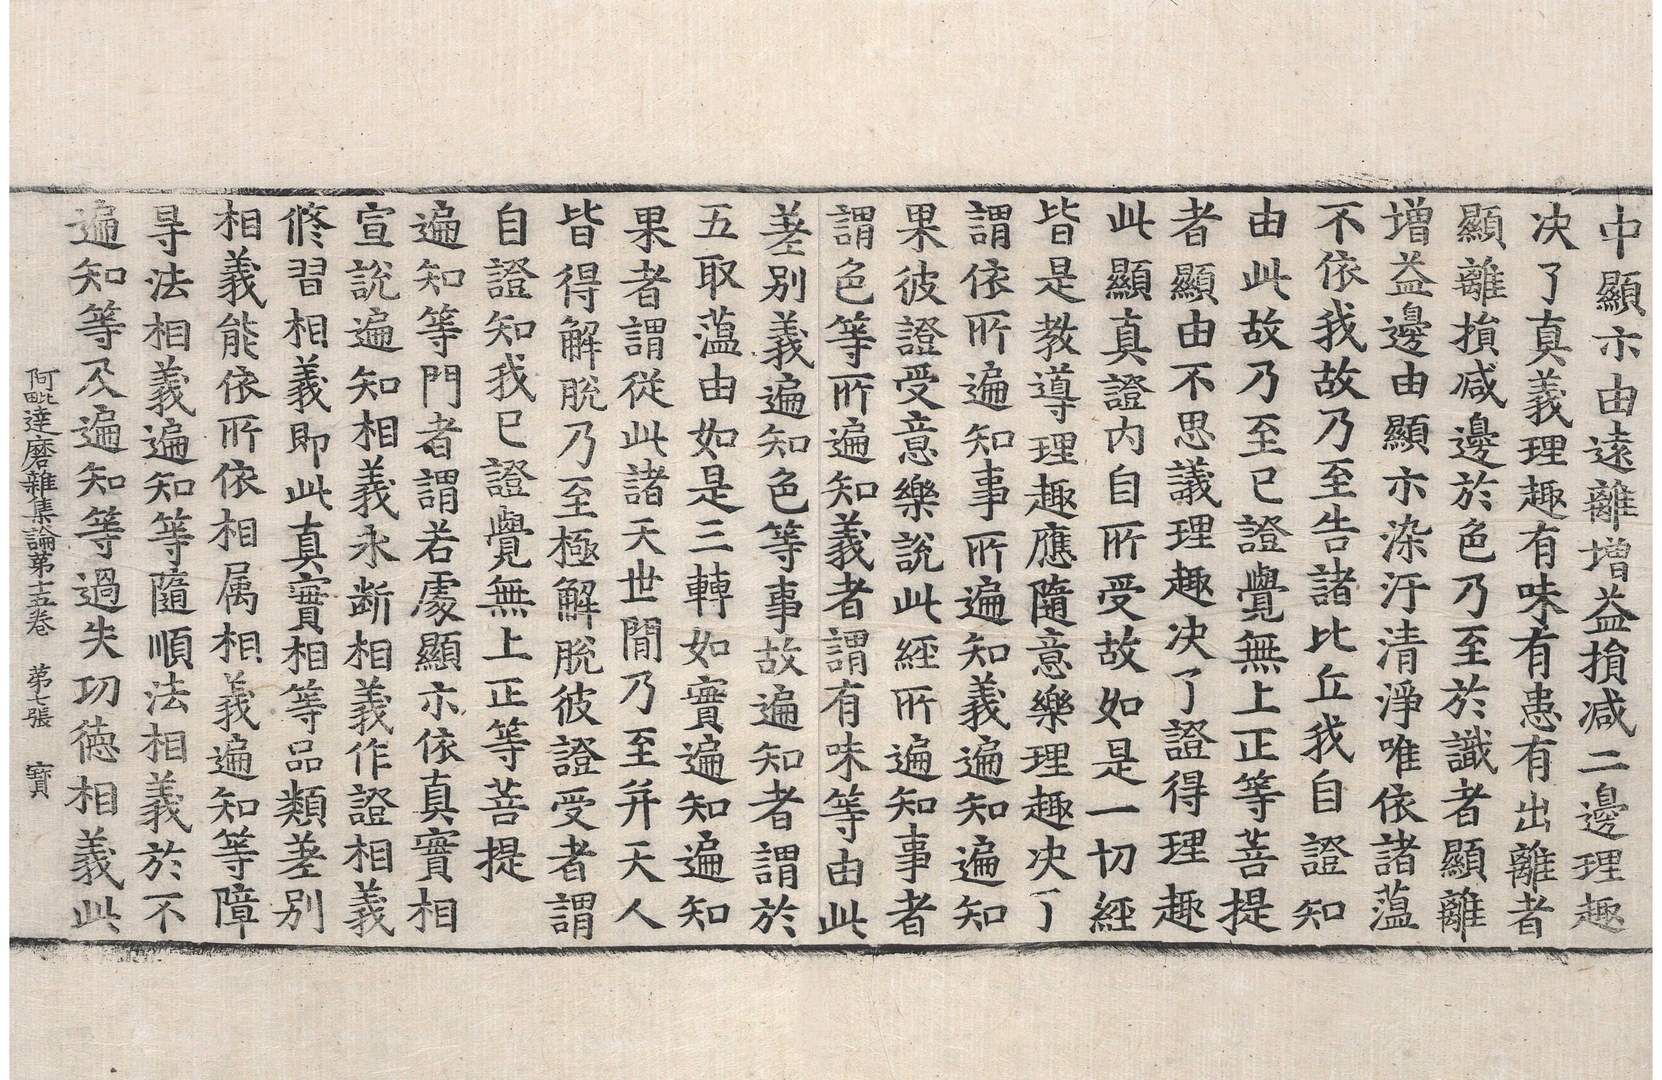 中顯示由遠離增益損减二邊理趣
决了真義理趣有味有患有出離者
顯離損减邊於色乃至於識者顯離
增益邊由顯示染汙清淨唯依諸薀
不依我故乃至告諸比丘我自證知
由此故乃至已證覺無上正等菩提
者顯由不思議理趣决了證得理趣
此顯真證内自所受故如是一切經
皆是教導理趣應隨意樂理趣决了
謂依所遍知事所遍知義遍知遍知
果彼證受意樂說此經所遍知事者
謂色等所遍知義者謂有味等由此
差别義遍知色等事故遍知者謂於
五取薀由如是三轉如實遍知遍知
果者謂從此諸天世間乃至并天人
皆得解脫乃至極解脫彼證受者謂
自證知我已證覺無上正等菩提
遍知等門者謂若處顯示依真實相
宣說遍知相義永断相義作證相義
修習相義即此真實相等品類差别
相義能依所依相属相義遍知等障
㝵法相義遍知等隨順法相義於不
遍知等及遍知等過失功德相義此
阿毗達磨雜集論第十五卷　第七張　寶